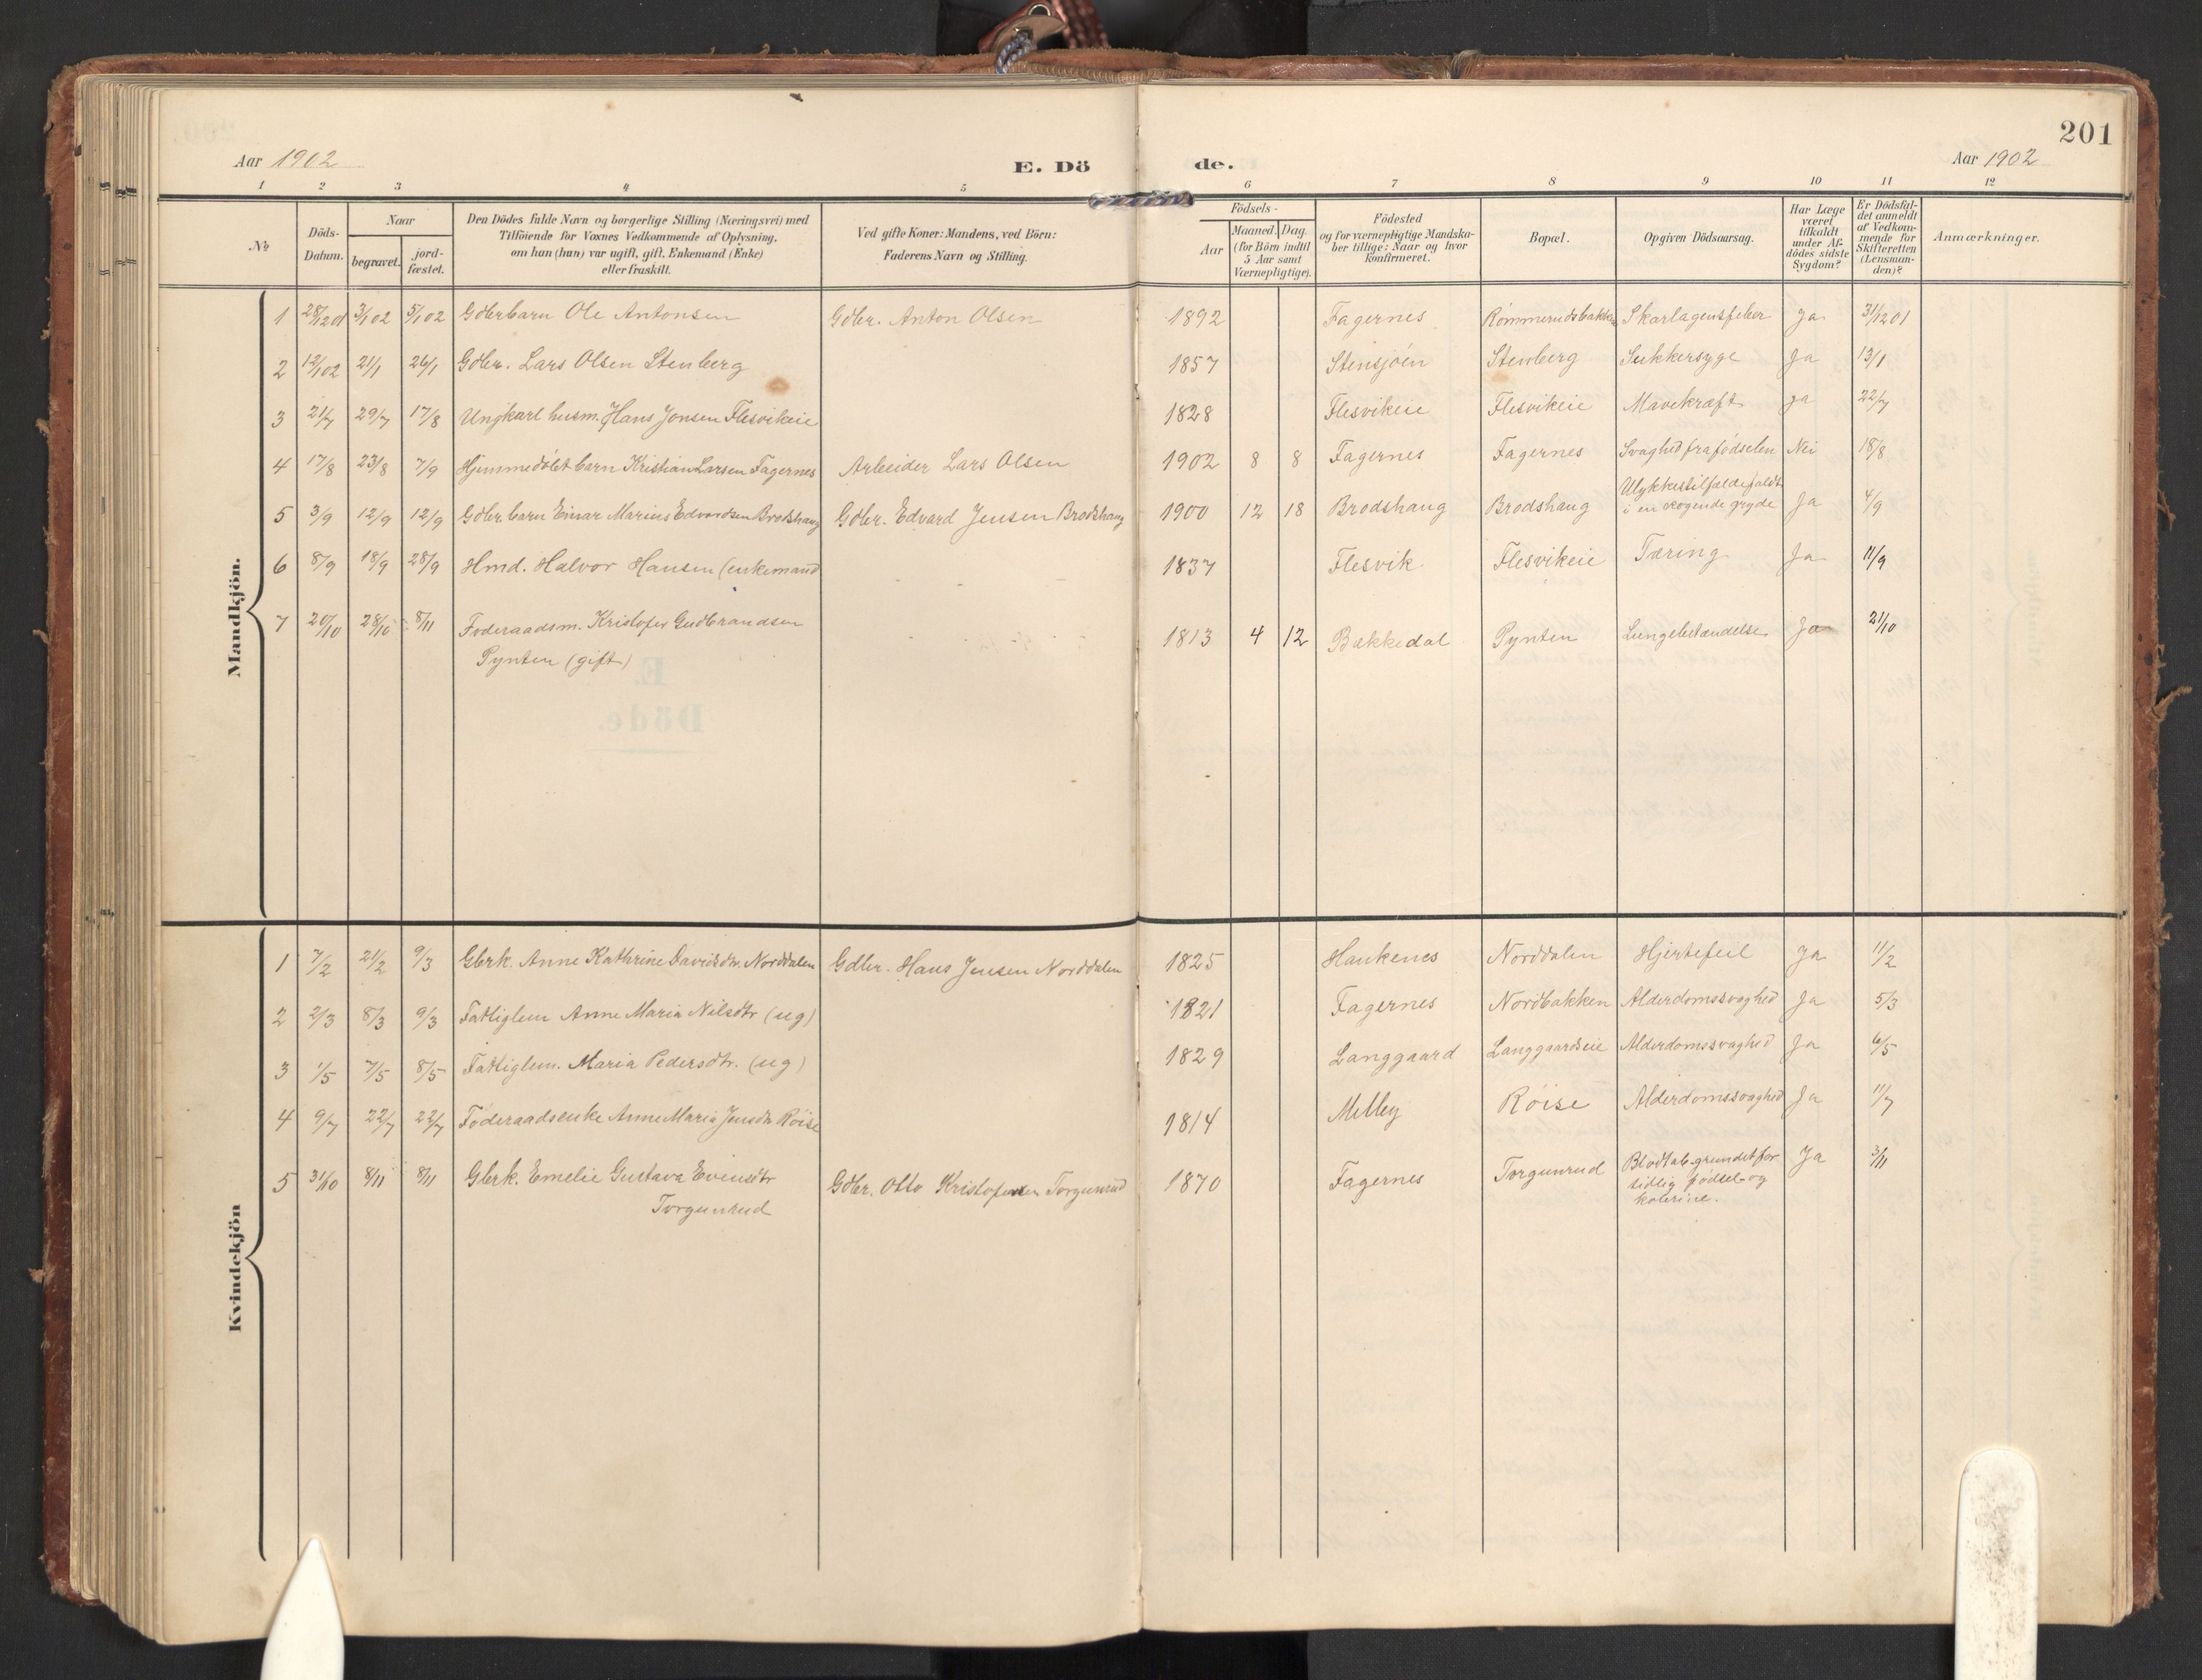 201
Aar 1902
E. Dö de.
Aar 1902
1 2 3 4 5 6 7 8 9 10 11 12
№
Döds-
Datum.
Naar
begravet.
jord-
fæstet.
Den Dödes fulde Navn og borgerlige Stilling (Næringsvei) med
Tilföiende for Voxnes Vedkommende af Oplysning,
om han (hun) var ugift, gift, Enkemand (Enke)
eller fraskilt.
Ved gifte Koner: Mandens, ved Börn:
Faderens Navn og Stilling.
Födsels-
Aar
Maaned. Dag.
(for Börn indtil
5 Aar samt
Værnepligtige).
Födested
og for værnepligtige Mandska-
ber tillige: Naar og hvor
konfirmeret.
Bopæl.
Opgiven Dödsaarsag.
Har Læge
været
tilkaldt
under Af-
dödes sidste
Sygdom?
Er Dödsfal-
det anmeldt
af Vedkom-
mende for
Skifteretten
(Lensman-
den)?
Anmærkninger.
Mandkjön.
1 28/12 01 3/1 02 5/1 02 Gdbrbarn Ole Antonsen Gdbr. Anton Olsen 1892 Fagernes Rømmerudsbakken Skarlagensfeber Ja 31/12 01
2 12/1 02 21/1 26/1 Gdbr. Lars Olsen Stenberg 1857 Stensjøen Stenberg Sukkersyge Ja 13/1
3 21/7 29/7 17/8 Ungkarl husm. Hans Jonsen Flesvikeie 1828 Flesvikeie Flesvikeie Mavekræft Ja 22/7
4 17/8 23/8 7/9 Hjemmedøbt barn Kristian Larsen Fagernes Arbeider Lars Olsen 1902 8 8 Fagernes Fagernes Svaghed fra fødselen Nei 18/8
5 3/9 12/9 12/9 Gdbr. barn Einar Marius Edvardsen Brodshaug Gdbr. Edvard Jensen Brodshaug 1900 12 18 Brodshaug Brodshaug Ulykkestilfælde faldt
i en kogende gryde Ja 4/9
6 8/9 18/9 28/9 Hmd. Halvor Hansen (enkemand 1837 Flesvik Flesvikeie Tæring Ja 11/9
7 20/10 28/10 8/11 Foderaadsm. Kristofer Gudbrandsen
Pynten (gift) 1813 4 12 Bakkedal Pynten Lungebetændelse Ja 21/10
Kvindekjön
1 7/2 21/2 9/3 Gbrk. Anne Kathrine Davidsdtr. Norddalen Gdbr. Hans Jensen Norddalen 1825 Haukenes Norddalen Hjertefeil Ja 11/2
2 2/3 8/3 9/3 Fattiglem Anne Maria Nilsdtr (ug) 1821 Fagernes Nordbakken Alderdomssvaghed Ja 5/3
3 1/5 7/5 8/5 Fattiglem. Maria Pedersdtr. (ug) 1829 Langgaard Langgaardseie Alderdomssvaghed Ja 6/5
4 9/7 22/7 22/7 Føderaadsenke Anne Maria Jensdtr Røise 1814 Melby Røise Alderdomssvaghed Ja 11/7
5 31/10 8/11 8/11 Gbrk. Emelie Gustava Evensdtr
Torgunrud Gdbr. Otto Kristofersen Torgunrud 1870 Fagernes Torgunrud Blodtab grundet for
tidlig fødsel og
kolerine. Ja 3/11